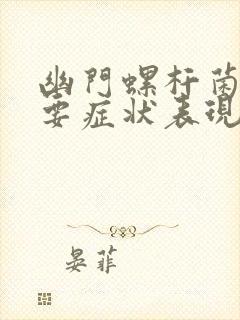 幽門螺杆菌
要症状表現
晏菲